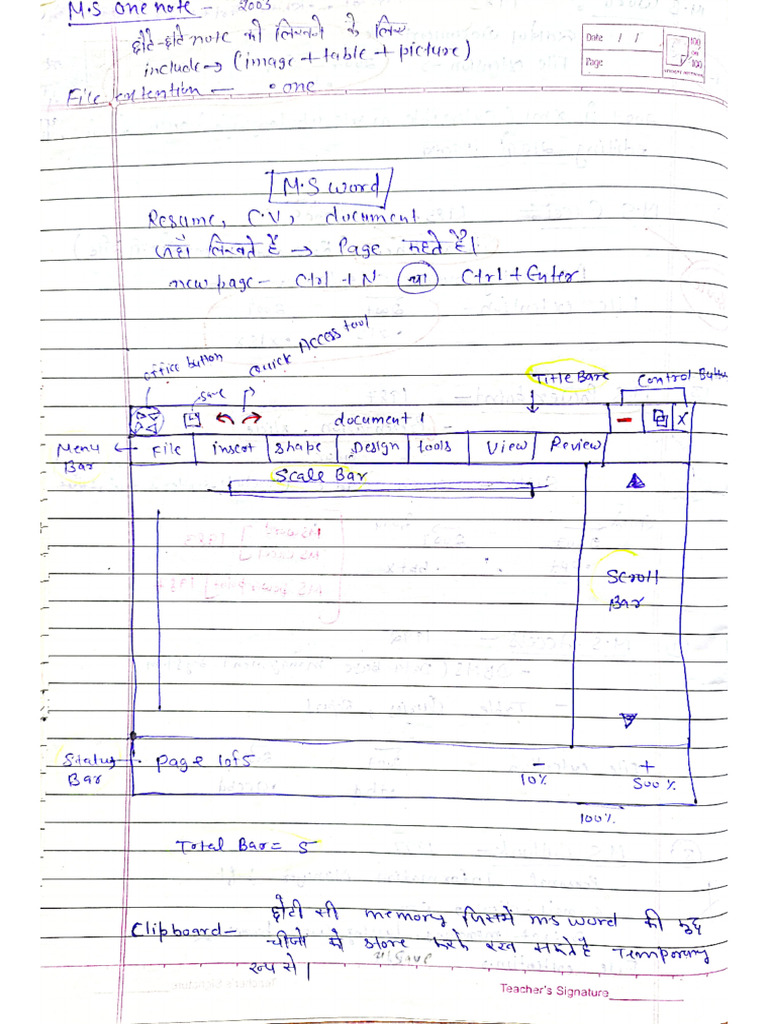 M.S One note - 2003
छोटे-छोटे note को लिखने के लिए
include → (image + table + picture)
File extention — .one
Date / /
Page
M.S word
Resume, C.V, document
जहाँ लिखते हैं → Page कहते हैं।
new page - Ctrl + N या Ctrl + Enter
office button
save
Quick Access tool
Title Bare
Control Butto
document 1
X
Menu Bar ← File insert shape Design tools View Review
Scale Bar
Scroll
Bar
Status Bar
Page 1 of 5
- +
10% 500%
100%
Total Bar = 5
Clipboard - छोटी सी memory जिसमें ms word की कुछ
चीजों को store करके रख सकते हैं Temporary
रूप से।
Teacher's Signature